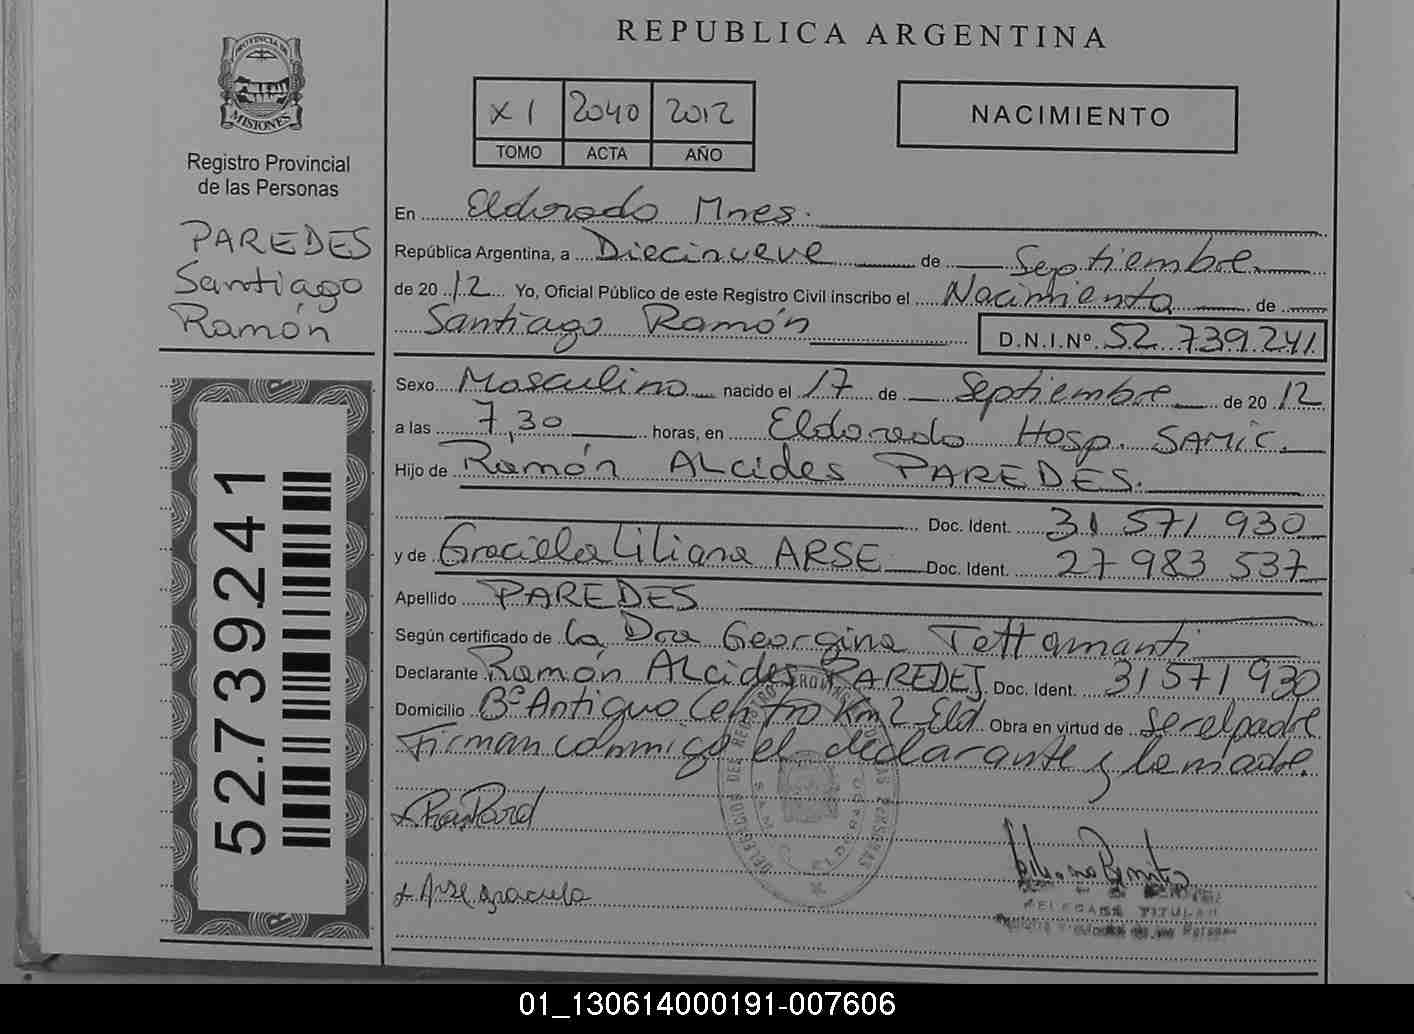 REPUBLICA ARGENTINA
PROVINCIA DE
MISIONES
Registro Provincial
de las Personas
PAREDES
Santiago
Ramón
52.739.241
XI 2040 2012
TOMO ACTA AÑO
NACIMIENTO
En Eldorado Mnes.
República Argentina, a Diecinueve de Septiembre
de 2012 Yo, Oficial Público de este Registro Civil inscribo el Nacimiento de
Santiago Ramón D.N.I.Nº 52.739.241
Sexo Masculino nacido el 17 de Septiembre de 2012
a las 7,30 horas, en Eldorado Hosp. SAMIC.
Hijo de Ramón ALcides PAREDES.
Doc. Ident. 31 571 930
y de Graciela Liliana ARSE Doc. Ident. 27 983 537
Apellido PAREDES
Según certificado de La Dra Georgina Tettamanti
Declarante Ramón ALcides PAREDES Doc. Ident. 31 571 930
Domicilio Bº Antiguo Centro Km 2 Eld Obra en virtud de ser el padre
Firman conmigo el declarante y la madre.
Arse
DELEGADA TITULAR
01_130614000191-007606